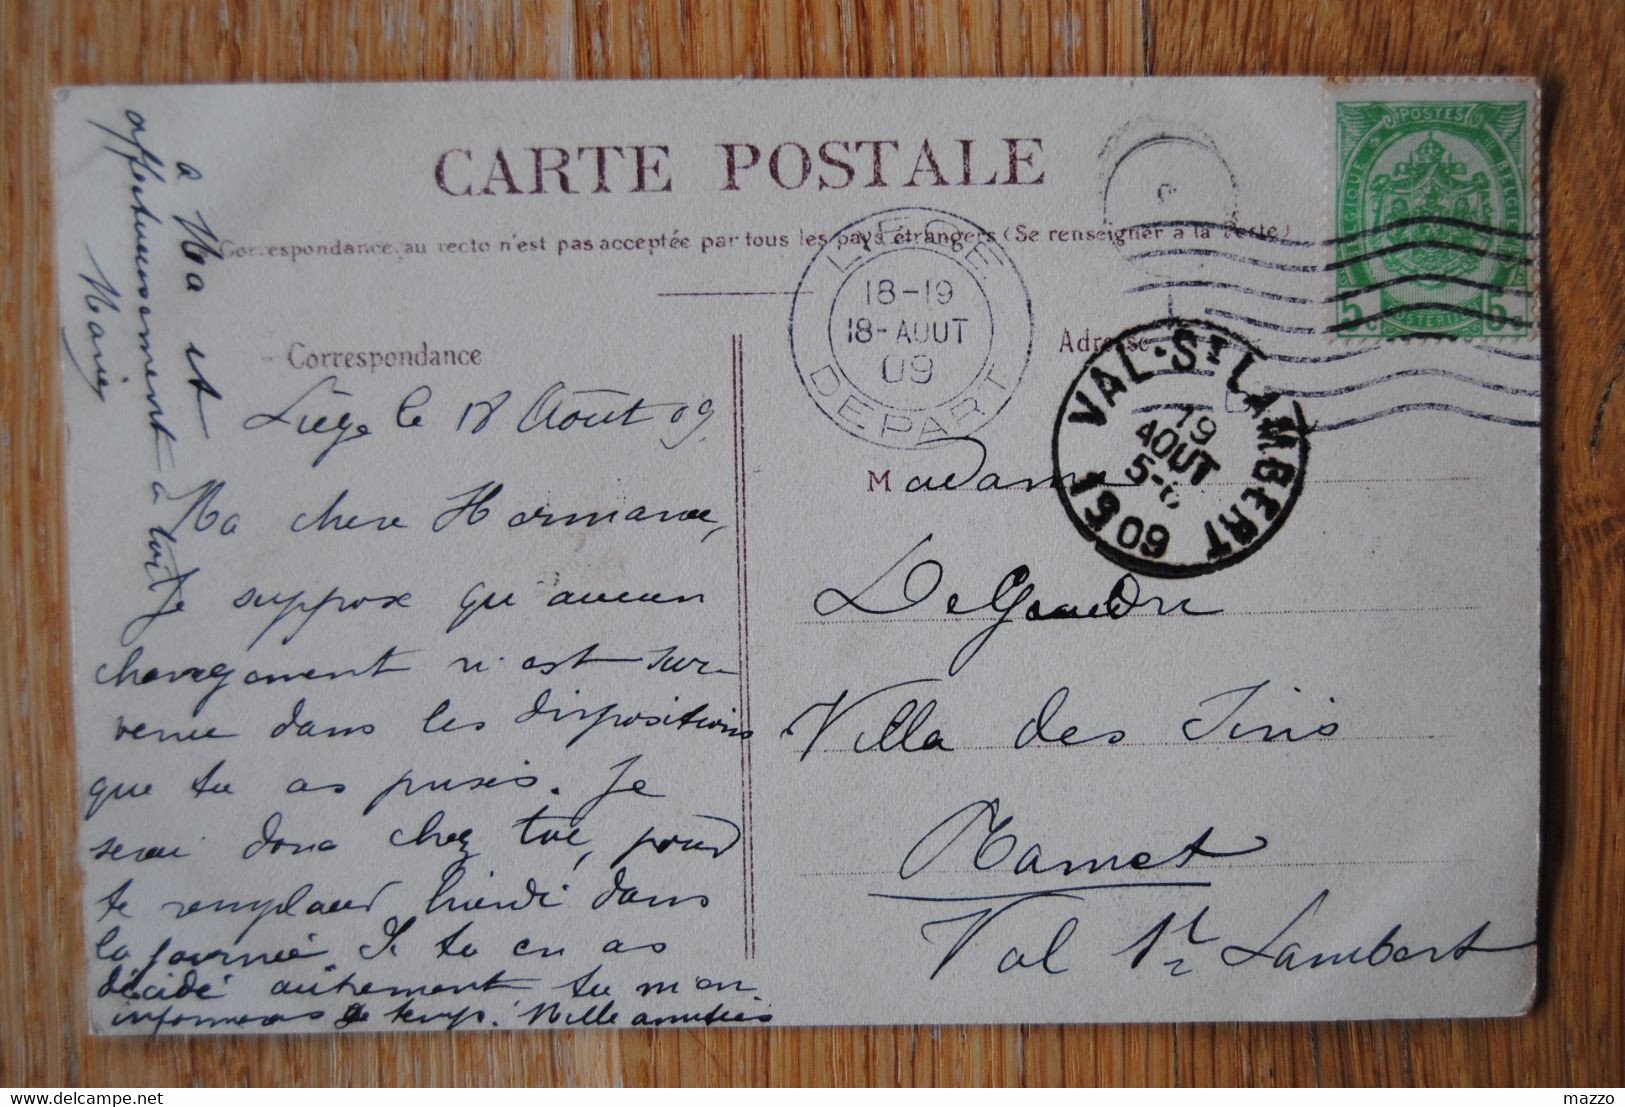 CARTE POSTALE
Correspondance au recto n'est pas acceptée par tous les pays étrangers (Se renseigner à la Poste)
Correspondance
Adresse
Liège le 18 Août 09.
Ma chère
Je suppose qu'aucun
changement n'est sur-
venu dans les dispositions
que tu as prises. Je
serai donc chez toi, pour
te dans
la journée Si tu en as
décidé autrement tu m'en
informeras temps. Mille amitiés
à Ma et
affectueusement à toi
Marie
Madame
Villa des
Ramet
Val St Lambert
LIEGE
18-19
18-AOUT
09
DEPART
VAL-ST LAMBERT
19
AOUT
5-6
1909
POSTES
BELGIQUE
BELGIE
POSTERIJEN
5c 5c
mazzo
delcampe.net